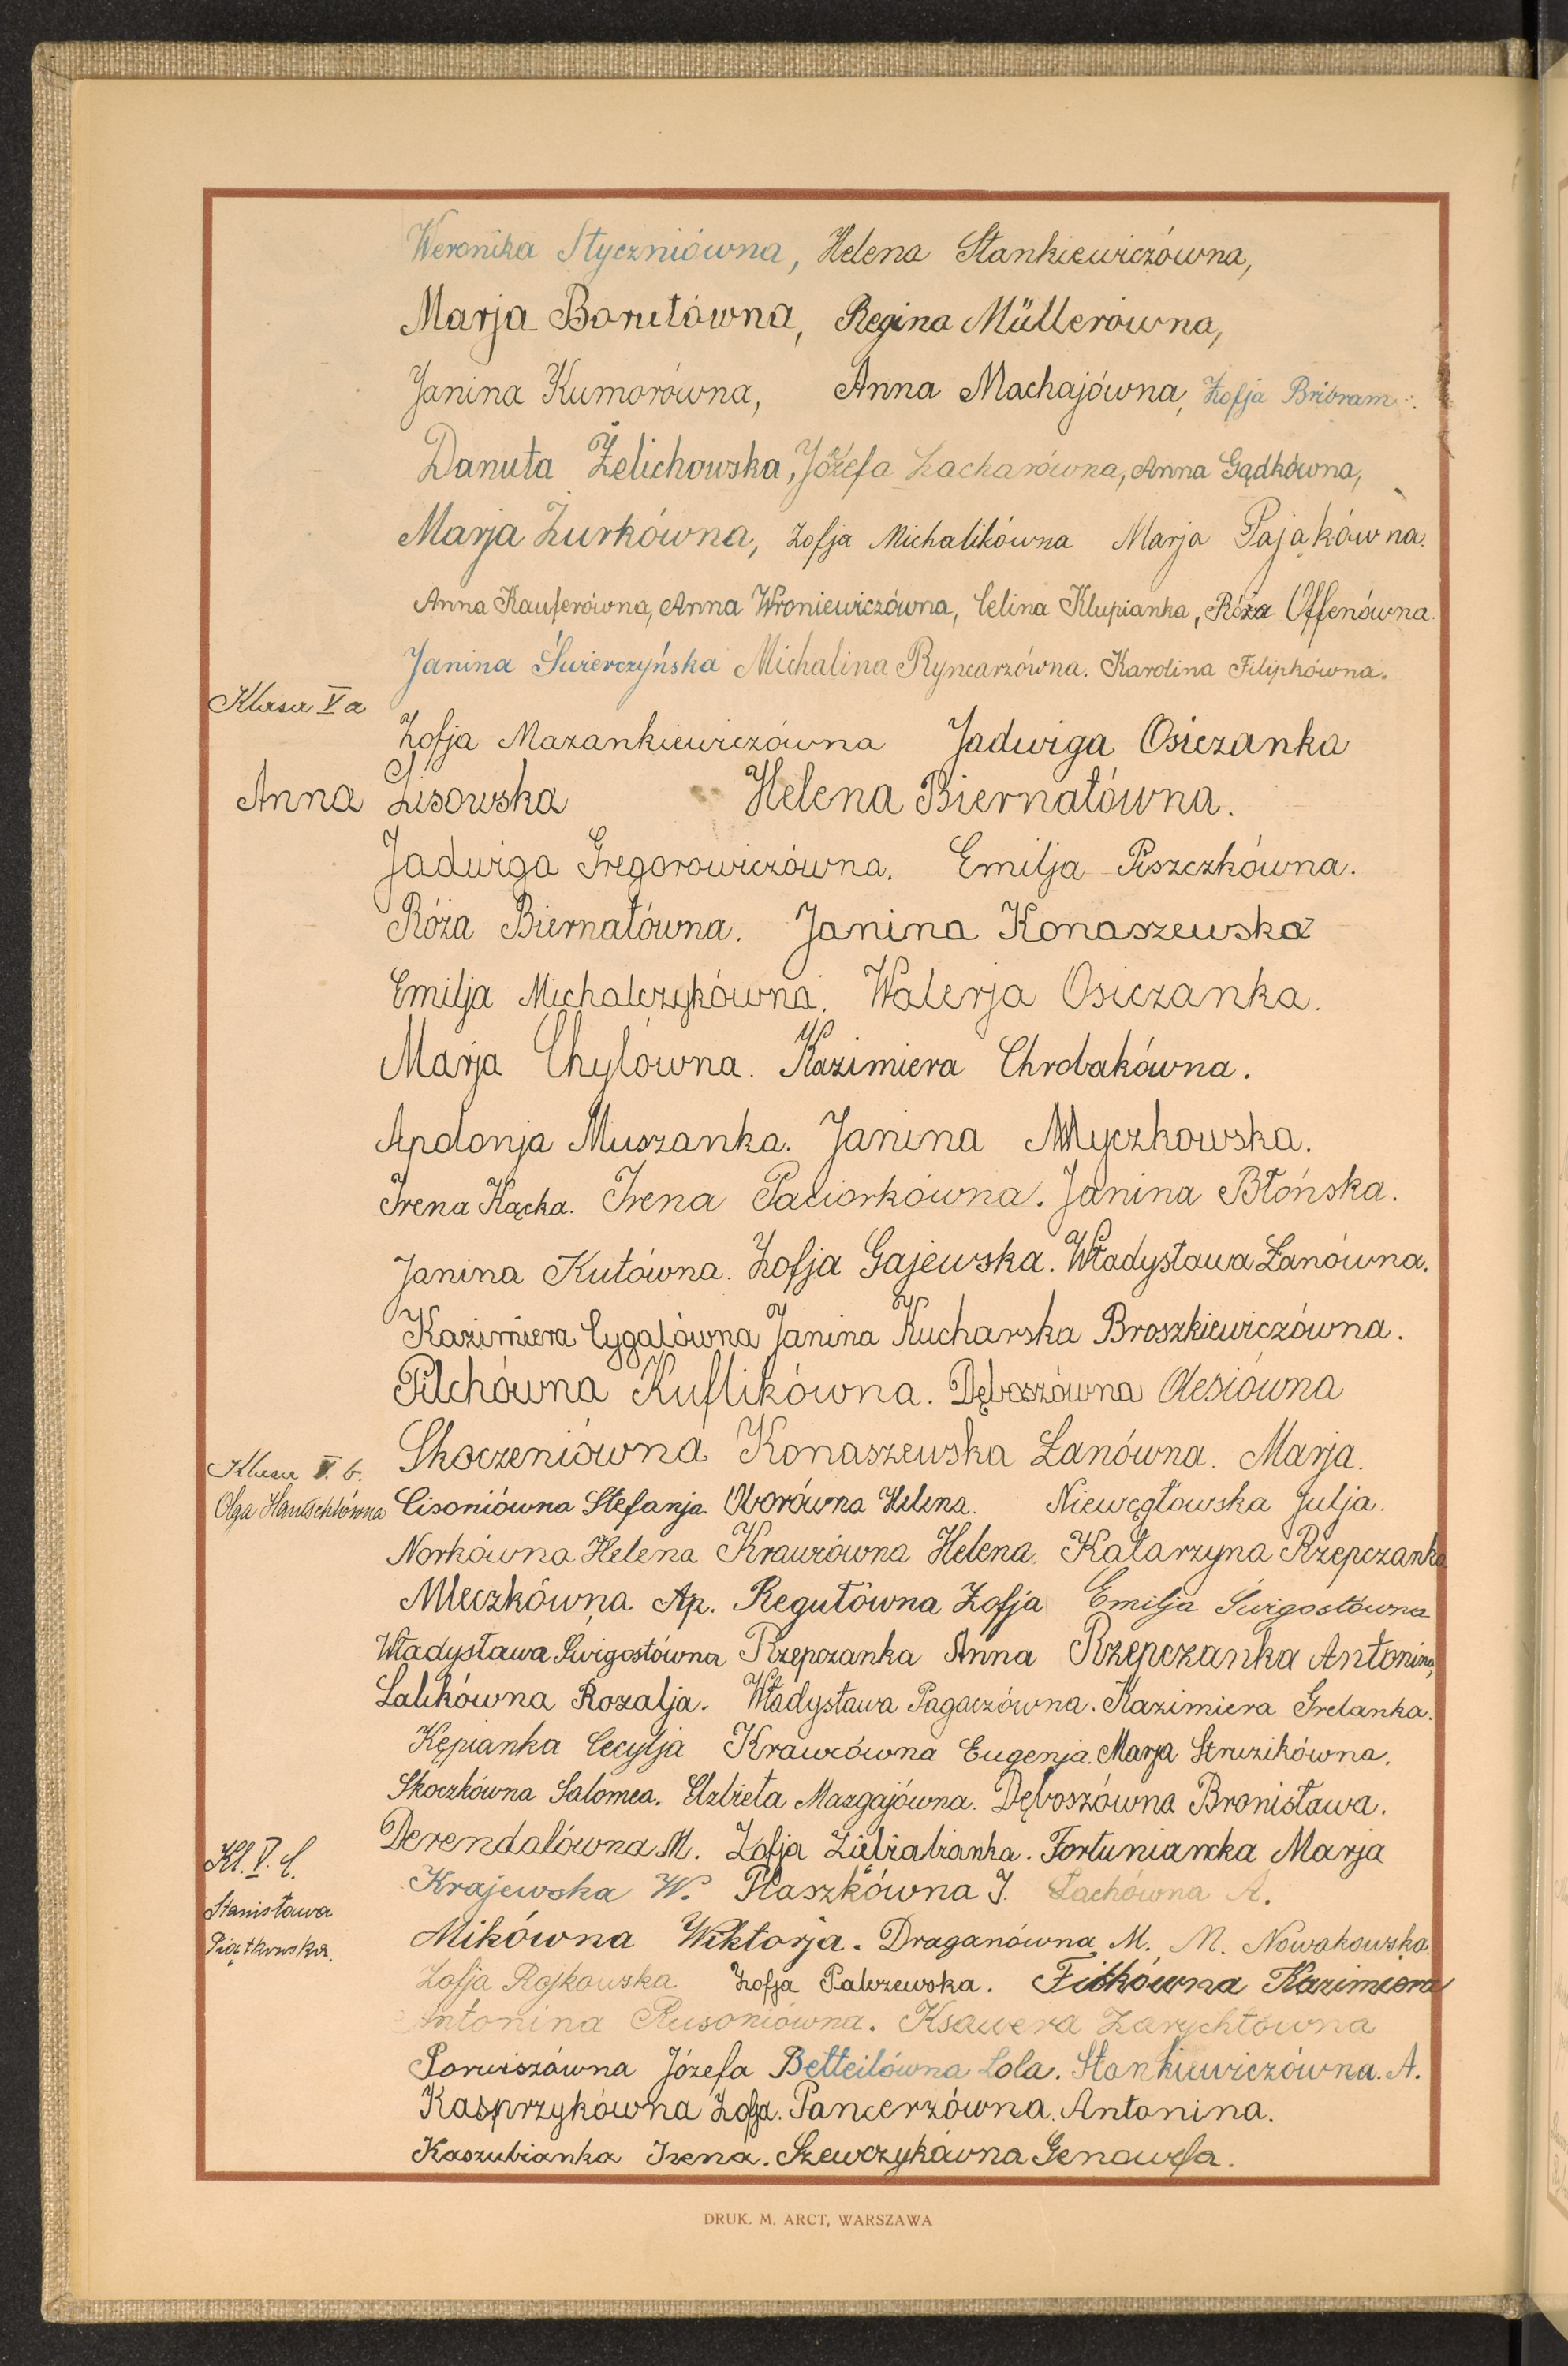 Weronika Styczniówna, Helena Stankiewiczówna,
Marja Borutówna, Regina Müllerówna,
Janina Kumorówna, Anna Machajówna, Zofja Bribram.
Danuta Żelichowska, Józefa Zacharówna, Anna Gądkówna,
Marja Żurkówna, Zofja Michalikówna Marja Pająkówna.
Anna Kauferówna, Anna Wroniewiczówna, Celina Klupianka, Róża Offenówna.
Janina Świerczyńska Michalina Ryncarzówna. Karolina Filipkówna.
Klasa V a
Zofja Mazankiewiczówna Jadwiga Osiczanka
Anna Lisowska Helena Biernatówna.
Jadwiga Gregorowiczówna. Emilja Piszczkówna.
Róża Biernatówna. Janina Konaszewska
Emilja Michalczykówna. Walerja Osiczanka.
Marja Chylówna. Kazimiera Chrobakówna.
Apolonja Muszanka. Janina Myczkowska.
Irena Kącka. Irena Paciorkówna. Janina Błońska.
Janina Kutówna. Zofja Gajewska. Władysława Łanówna.
Kazimiera Cygalówna Janina Kucharska Broszkiewiczówna.
Pilchówna Kuflikówna. Dęboszówna Olesiówna
Skoczeniówna Konaszewska Łanówna. Marja.
Klasa V. b.
Olga Cisoniówna Stefanja. Oborówna Helena. Niewęgłowska Julja.
Norkówna Helena Krawcówna Helena. Katarzyna Rzepczanka
Mleczkówna Ap. Regutówna Zofja Emilja Świgostówna
Władysława Świgostówna Rzepczanka Anna Rzepczanka Antonina,
Lalikówna Rozalja. Władysława Pagaczówna. Kazimiera Grelanka.
Kępianka Cecylja Krawcówna Eugenja. Marja Struzikówna.
Skoczkówna Salomea. Elżbieta Mazgajówna. Dęboszówna Bronisława.
Derendalówna M. Zofja Fortunianka Marja
Kl. V. C.
Krajewska W. Płaszkówna J. Łachówna A.
Stanisława
Mikówna Wiktorja. Draganówna M. M. Nowakowska.
Piątkowska.
Zofja Rojkowska Zofja Palczewska. Fitkówna Kazimiera
Antonina Rusoniówna. Ksawera Zarychtówna
Porwiszówna Józefa Betteilówna Lola. Stankiewiczówna. A.
Kasprzykówna Zofja. Pancerzówna. Antonina.
Kaszubianka Irena. Szewczykówna Genowefa.
DRUK. M. ARCT, WARSZAWA